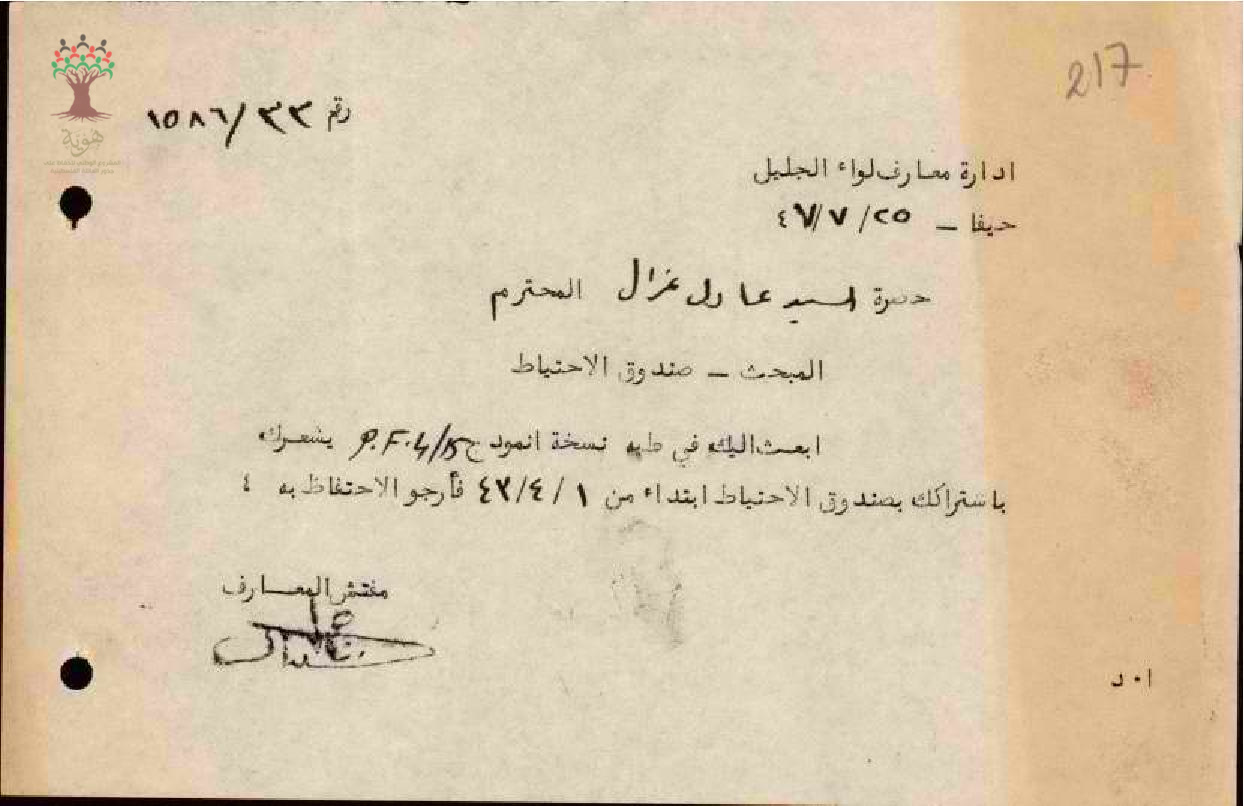 217
رقم ١٥٨٦/٣٣
هوية
ادارة معارف لواء الجليل
حيفا - ٤٧/٧/٢٥
حضرة السيد عادل غزال المحترم
المبحث - صندوق الاحتياط
ابعث اليك في طيه نسخة انموذج P.F.4/B يشعرك
باشتراكك بصندوق الاحتياط ابتداء من ٤٣/٤/١ فأرجو الاحتفاظ به ؛
مفتش المعارف
ا٠د